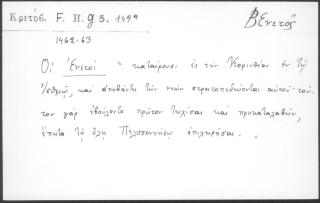 Κριτόβ. F. II. g 5. 1499 Βενετός
1462-63
Οἱ Ἐνετοὶ " καταίρουσι ἐς τὴν Κορινθίαν ἐν τῷ
Ἰσθμῷ, καὶ ἀποβάντες τῶν νεῶν στρατοπεδεύονται αὐτοῦ· τοῦ-
τον γὰρ ἐβούλοντο πρῶτον τειχίσαι καὶ προκαταλαβεῖν,
ἔπειτα τῇ ὅλῃ Πελοποννήσῳ ἐπιχειρῆσαι. "